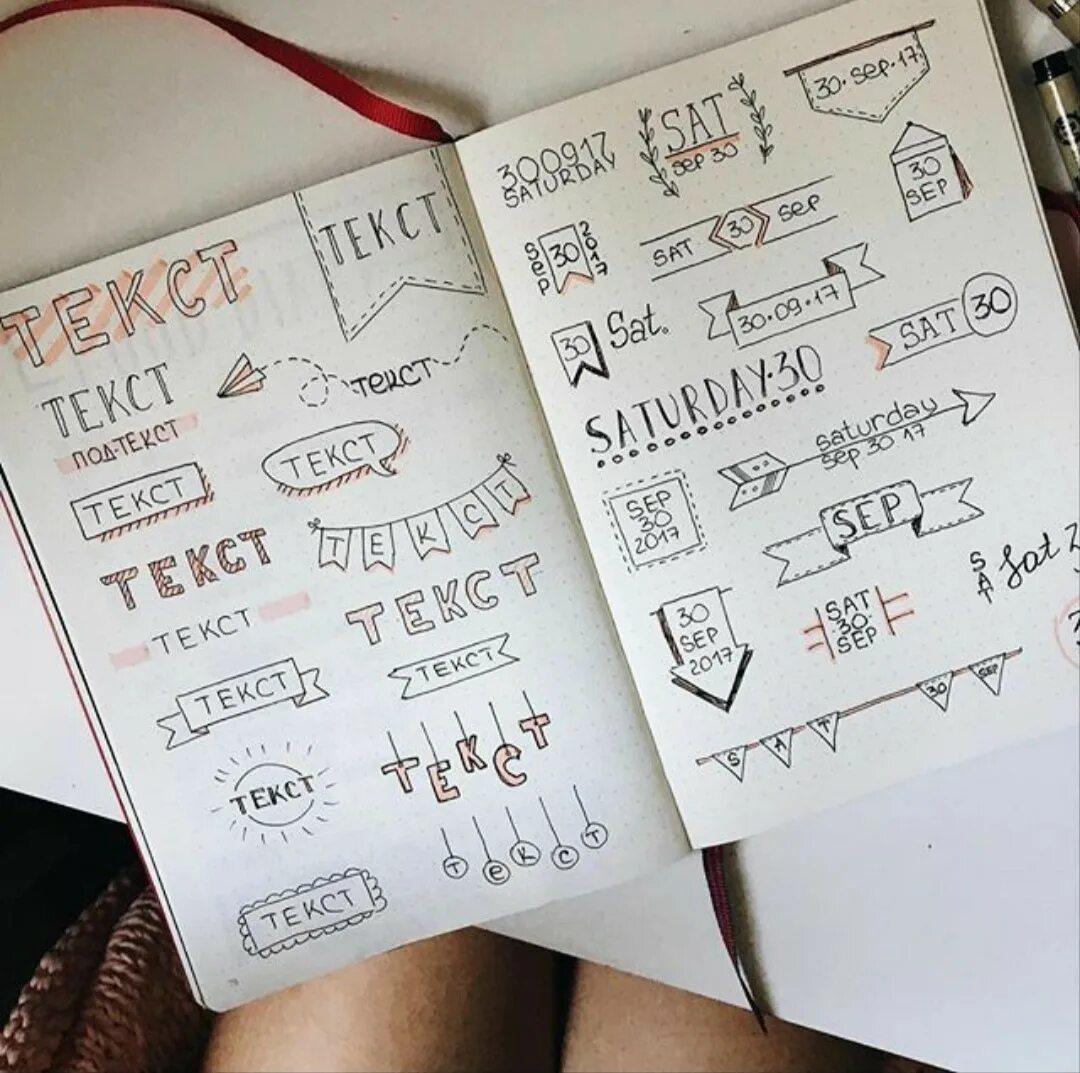 ТЕКСТ
ТЕКСТ
ТЕКСТ
ПОД-ТЕКСТ
текст
ТЕКСТ
ТЕКСТ
ТЕКСТ
ТЕКСТ
ТЕКСТ
ТЕКСТ
ТЕКСТ
ТЕКСТ
ТЕКСТ
ТЕКСТ
ТЕКСТ
ТЕКСТ
30·Sep·17
300917
SATURDAY
SAT
sep 30
30
SEP
Sep
30
2017
SAT 30 sep
30
Sat.
30·09·17
SAT 30
SATURDAY·30
saturday
sep 30 17
SEP
30
2017
SEP
SAT
Sat
30
SEP
2017
SAT
30
SEP
SAT 30 SEP